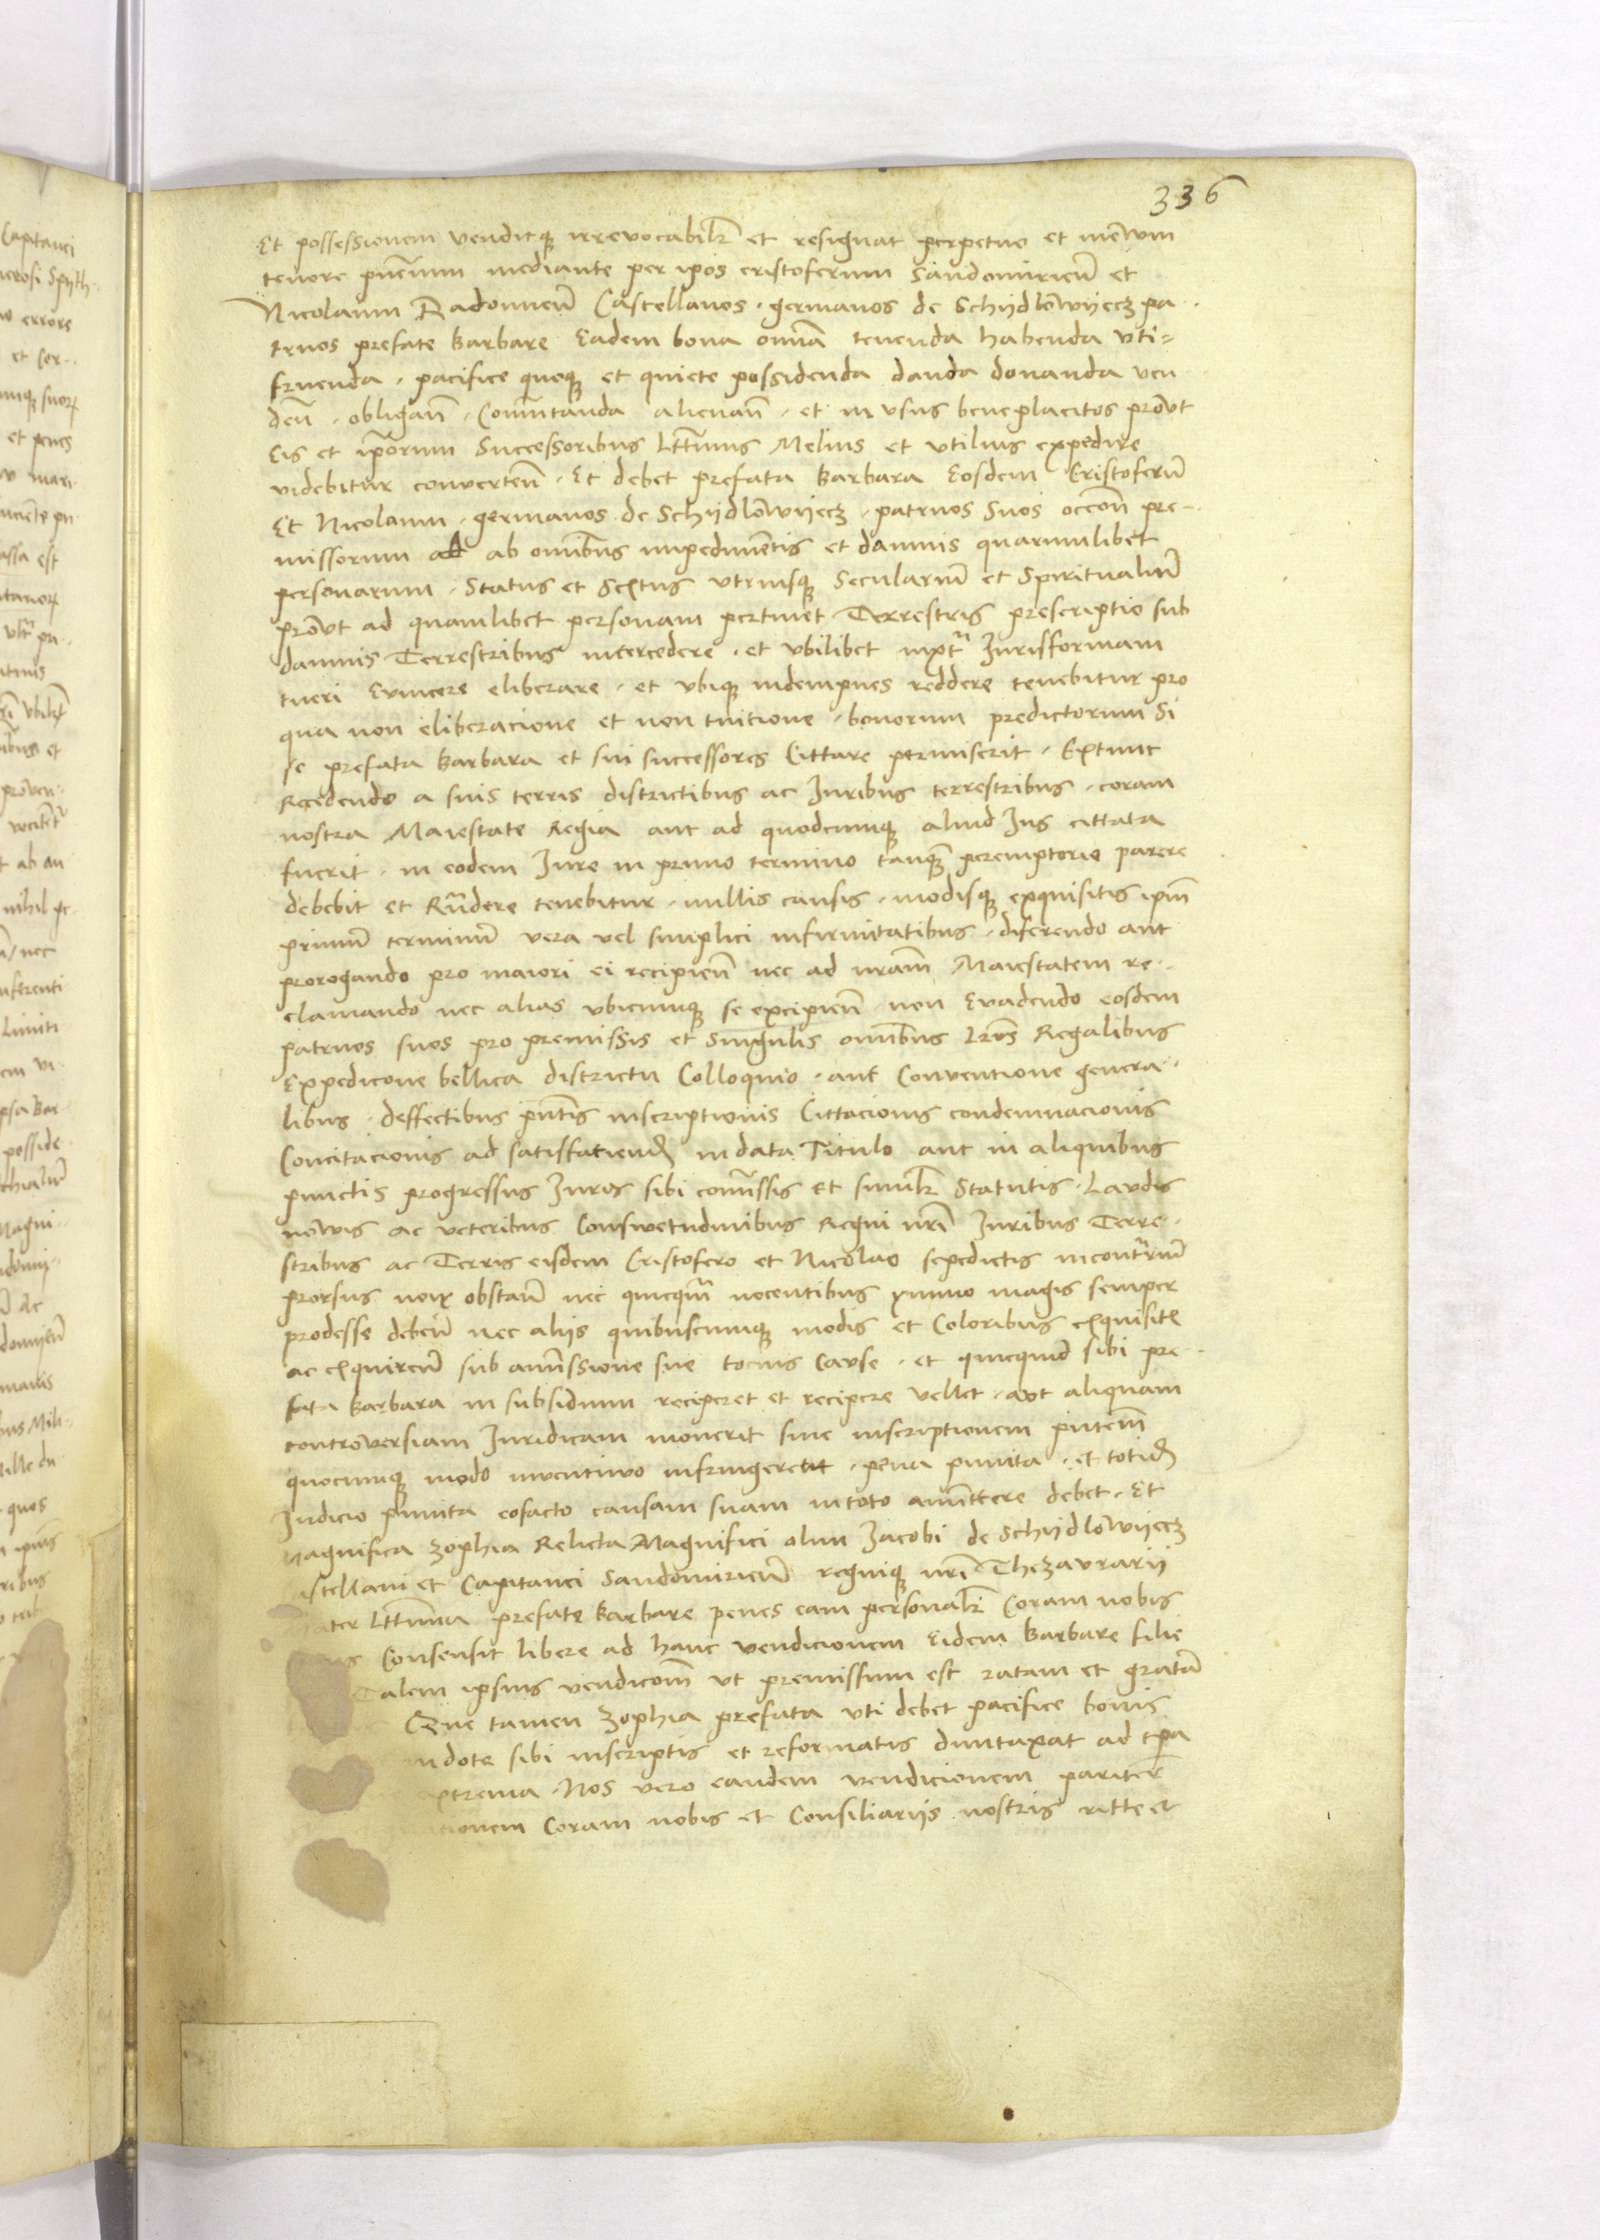 336
Et possessionem venditque irrevocabilr et resignat perpetuo et inewum
tenore pntium mediante per ipos cristoferum Sandomirien et
Nicolaum Radomien Castellanos · germanos de Schijdlowyecz pa
truos prefate Barbare Eadem bona omnia tenenda habenda vti=
fruenda · pacifice quoque et quiete possidenda danda donanda ven
den · obligan · Comutanda alienan · et in vsus beneplacitos prout
Eis et iporum Successoribus Lttimis Melius et vtilius expedire
videbitur converten · Et debet prefata Barbara Eosdem Cristoferu
Et Nicolaum · germanos de Schijdlowyecz · patruos Suos occon pre
missorum ab omibus impedimentis et damnis quarumlibet
personarum · Status et Sextus vtriusque Seculariu et Spiritualiu
prout ad quamlibet personam pertinet Terrestris prescriptio sub
damnis Terrestribus intercedere · et vbilibet iuxta Iurisformam
tueri Evincere eliberare · et vbique indempnes reddere tenebitur pro
qua non eliberacione et non tuitione · bonorum predictorum Si
se prefata Barbara et sui successores Cittare permiserit · Extunc
Recedendo a suis terris districtibus ac Iuribus terrestribus · coram
nostra Maiestate Regia aut ad quodcumque aliud Ius cittata
fuerit · in eodem Iure in primo termino tanque peremptorie parere
debebit et Rndere tenebitur · nullis causis · modisque exquisitis ipm
primu terminu vera vel simplici infirmitatibus · diferendo aut
prorogando pro maiori ei recipien nec ad nram Maiestatem re
clamando nec alias vbicumque se excipien · non Evadendo eosdem
patruos suos pro premissis et Singulis omibus Lris Regalibus
Expedicone bellica districtu Colloquio · aut Conventione genera
libus · deffectibus pntis inscriptionis Cittacionis condemnacionis
Concitacionis ad satisfaciend in data Titulo aut in aliquibus
punctis progressus Iuris sibi comissis et simulr Statutis · Laudis
nowis ac veteribus Conswetudinibus Regni nri Iuribus Terre
stribus ac Terris eisdem Cristofero et Nicolao sepedictis incontrariu
prorsus non obstan nec quicqm nocentibus ymmo magis semper
prodesse deben nec aliis quibuscumque modis et Coloribus exquisitis
ac exquiren sub amissione sue tocius Cause · et quicquid sibi pre
fata Barbara in subsidium reciperet et recipere vellet · aut aliquam
controversiam Iuridicam moverit sive inscriptionem pntem
quocumque modo inventivo infringeret · pena punita · et totid
Iudicio punita eofacto causam suam intoto amittere debet · Et
Magnifica Zophia Relicta Magnifici olim Iacobi de Schijdlowyecz
astellani et Capitanei Sandomirien regnique nri Thezaurarii
ater Lttima prefate Barbare penes eam personalr Coram nobis
Consensit libere ad hanc vendicionem Eidem Barbare filie
Talem ipsius vendicom vt premissum est ratam et grata
Que tamen Zophia prefata vti debet pacifice bonis
in dote sibi inscriptis et reformatis duntaxat ad tpa
xtrema · Nos vero eandem vendicionem pariter
tionem Coram nobis et Consiliariis nostris ritte et